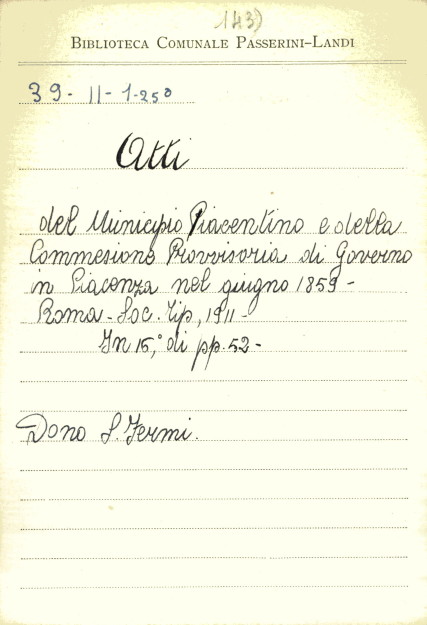 143)
BIBLIOTECA COMUNALE PASSERINI-LANDI
39- II- 1-25⁰
Atti
del Municipio Piacentino e della
Commesione Provvisoria di Governo
in Piacenza nel giugno 1859-
Roma- Soc. Tip, 1911-
In 15,° di pp. 52-
Dono S. Fermi.